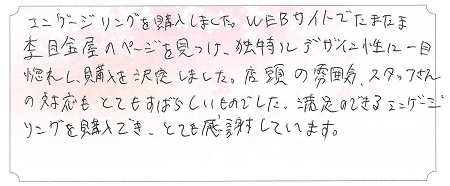 エンゲージリングを購入しました。WEBサイトでたまたま
杢目金屋のページを見つけ、独特なデザイン性に一目
惚れし、購入を決定しました。店頭の雰囲気、スタッフさん
の対応もとてもすばらしいものでした。満足のできるエンゲージ
リングを購入でき、とても感謝しています。